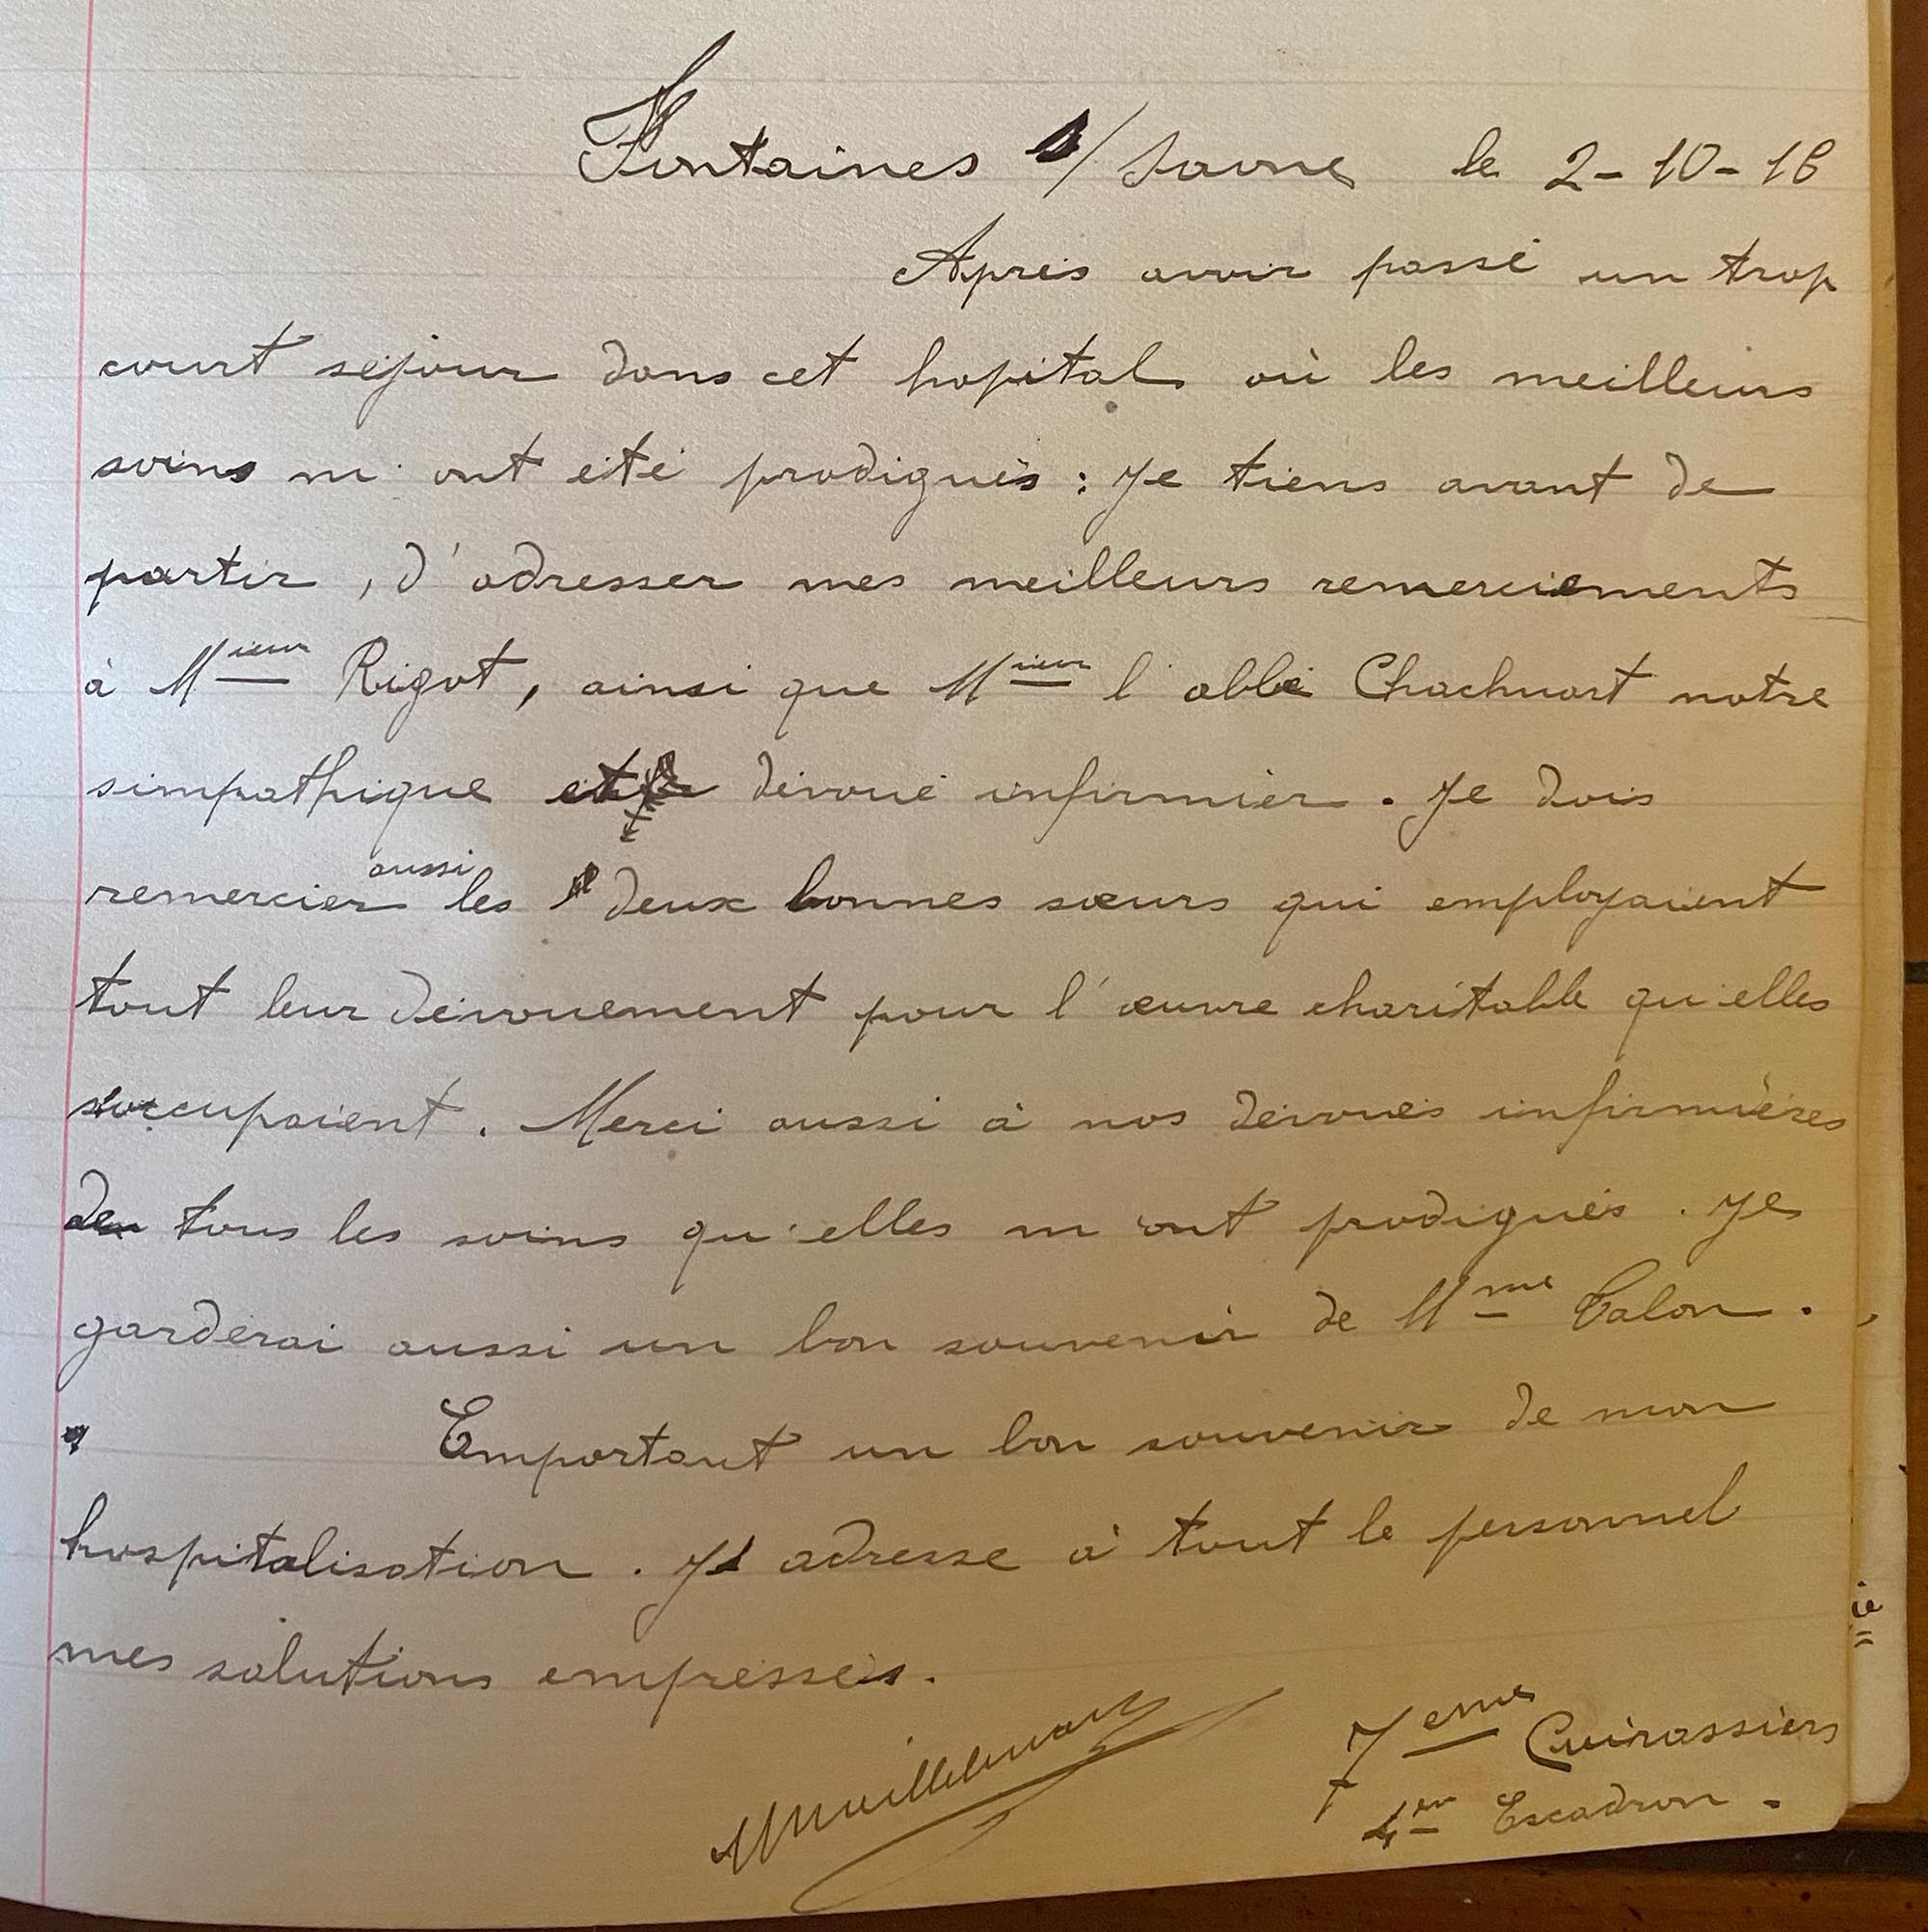 Fontaines s/ Saone le 2-10-16
Après avoir passé un trop
court sejour dans cet hopital où les meilleurs
soins m'ont été prodigués : Je tiens avant de
partir, d'adresser mes meilleurs remerciements
à Mieur Rigot, ainsi que Mieur l'abbé Chachuart notre
simpathique et dévoué infirmier. Je dois
remercier aussi les deux bonnes sœurs qui employaient
tout leur dévouement pour l'œuvre charitable qu'elles
s'occupaient. Merci aussi à nos dévoués infirmières
de tous les soins qu'elles m'ont prodigués. Je
garderai aussi un bon souvenir de Mme Calon.
Emportant un bon souvenir de mon
hospitalisation. J'adresse à tout le personnel
mes salutions empressés.
7eme Cuirassiers
Escadron.